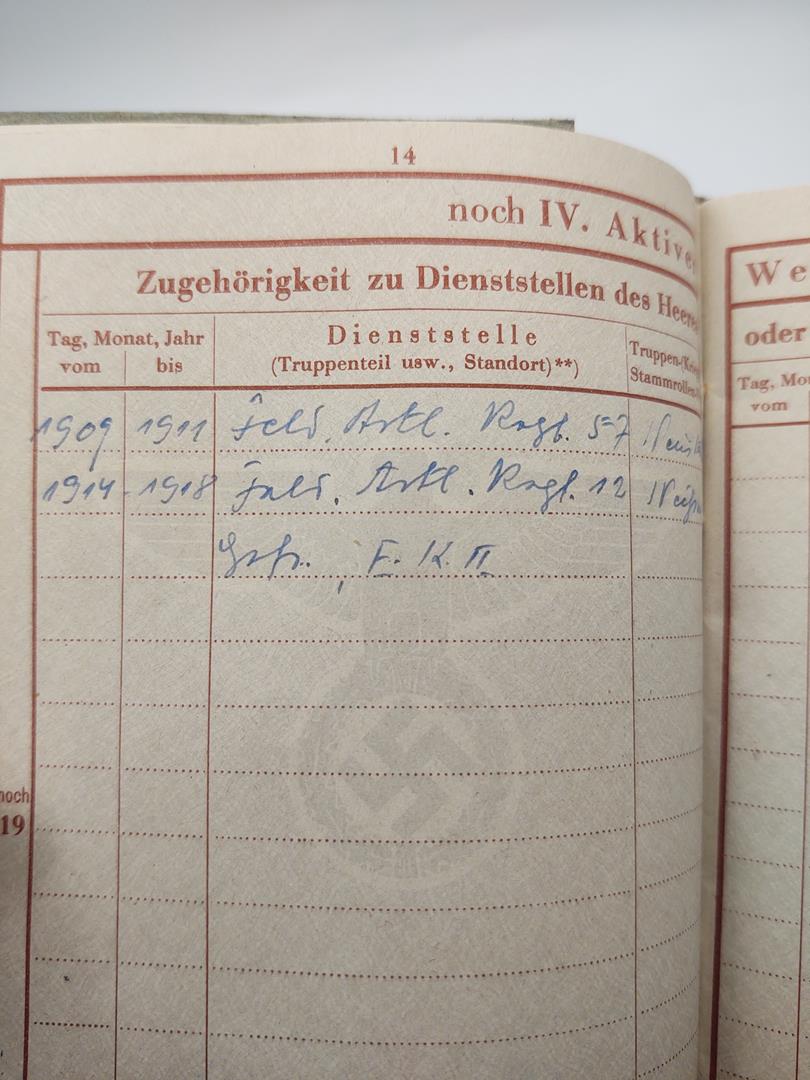 14
noch IV. Aktive
Zugehörigkeit zu Dienststellen des Heeres
Tag, Monat, Jahr
vom bis
Dienststelle
(Truppenteil usw., Standort)**)
Truppen-
Stammrollen
1909 1911 Feld. Artl. Regt. 57
1914 - 1918 Feld. Artl. Regt. 12
Gefr., E. K. II
noch
19
We
oder
Tag, Mo
vom